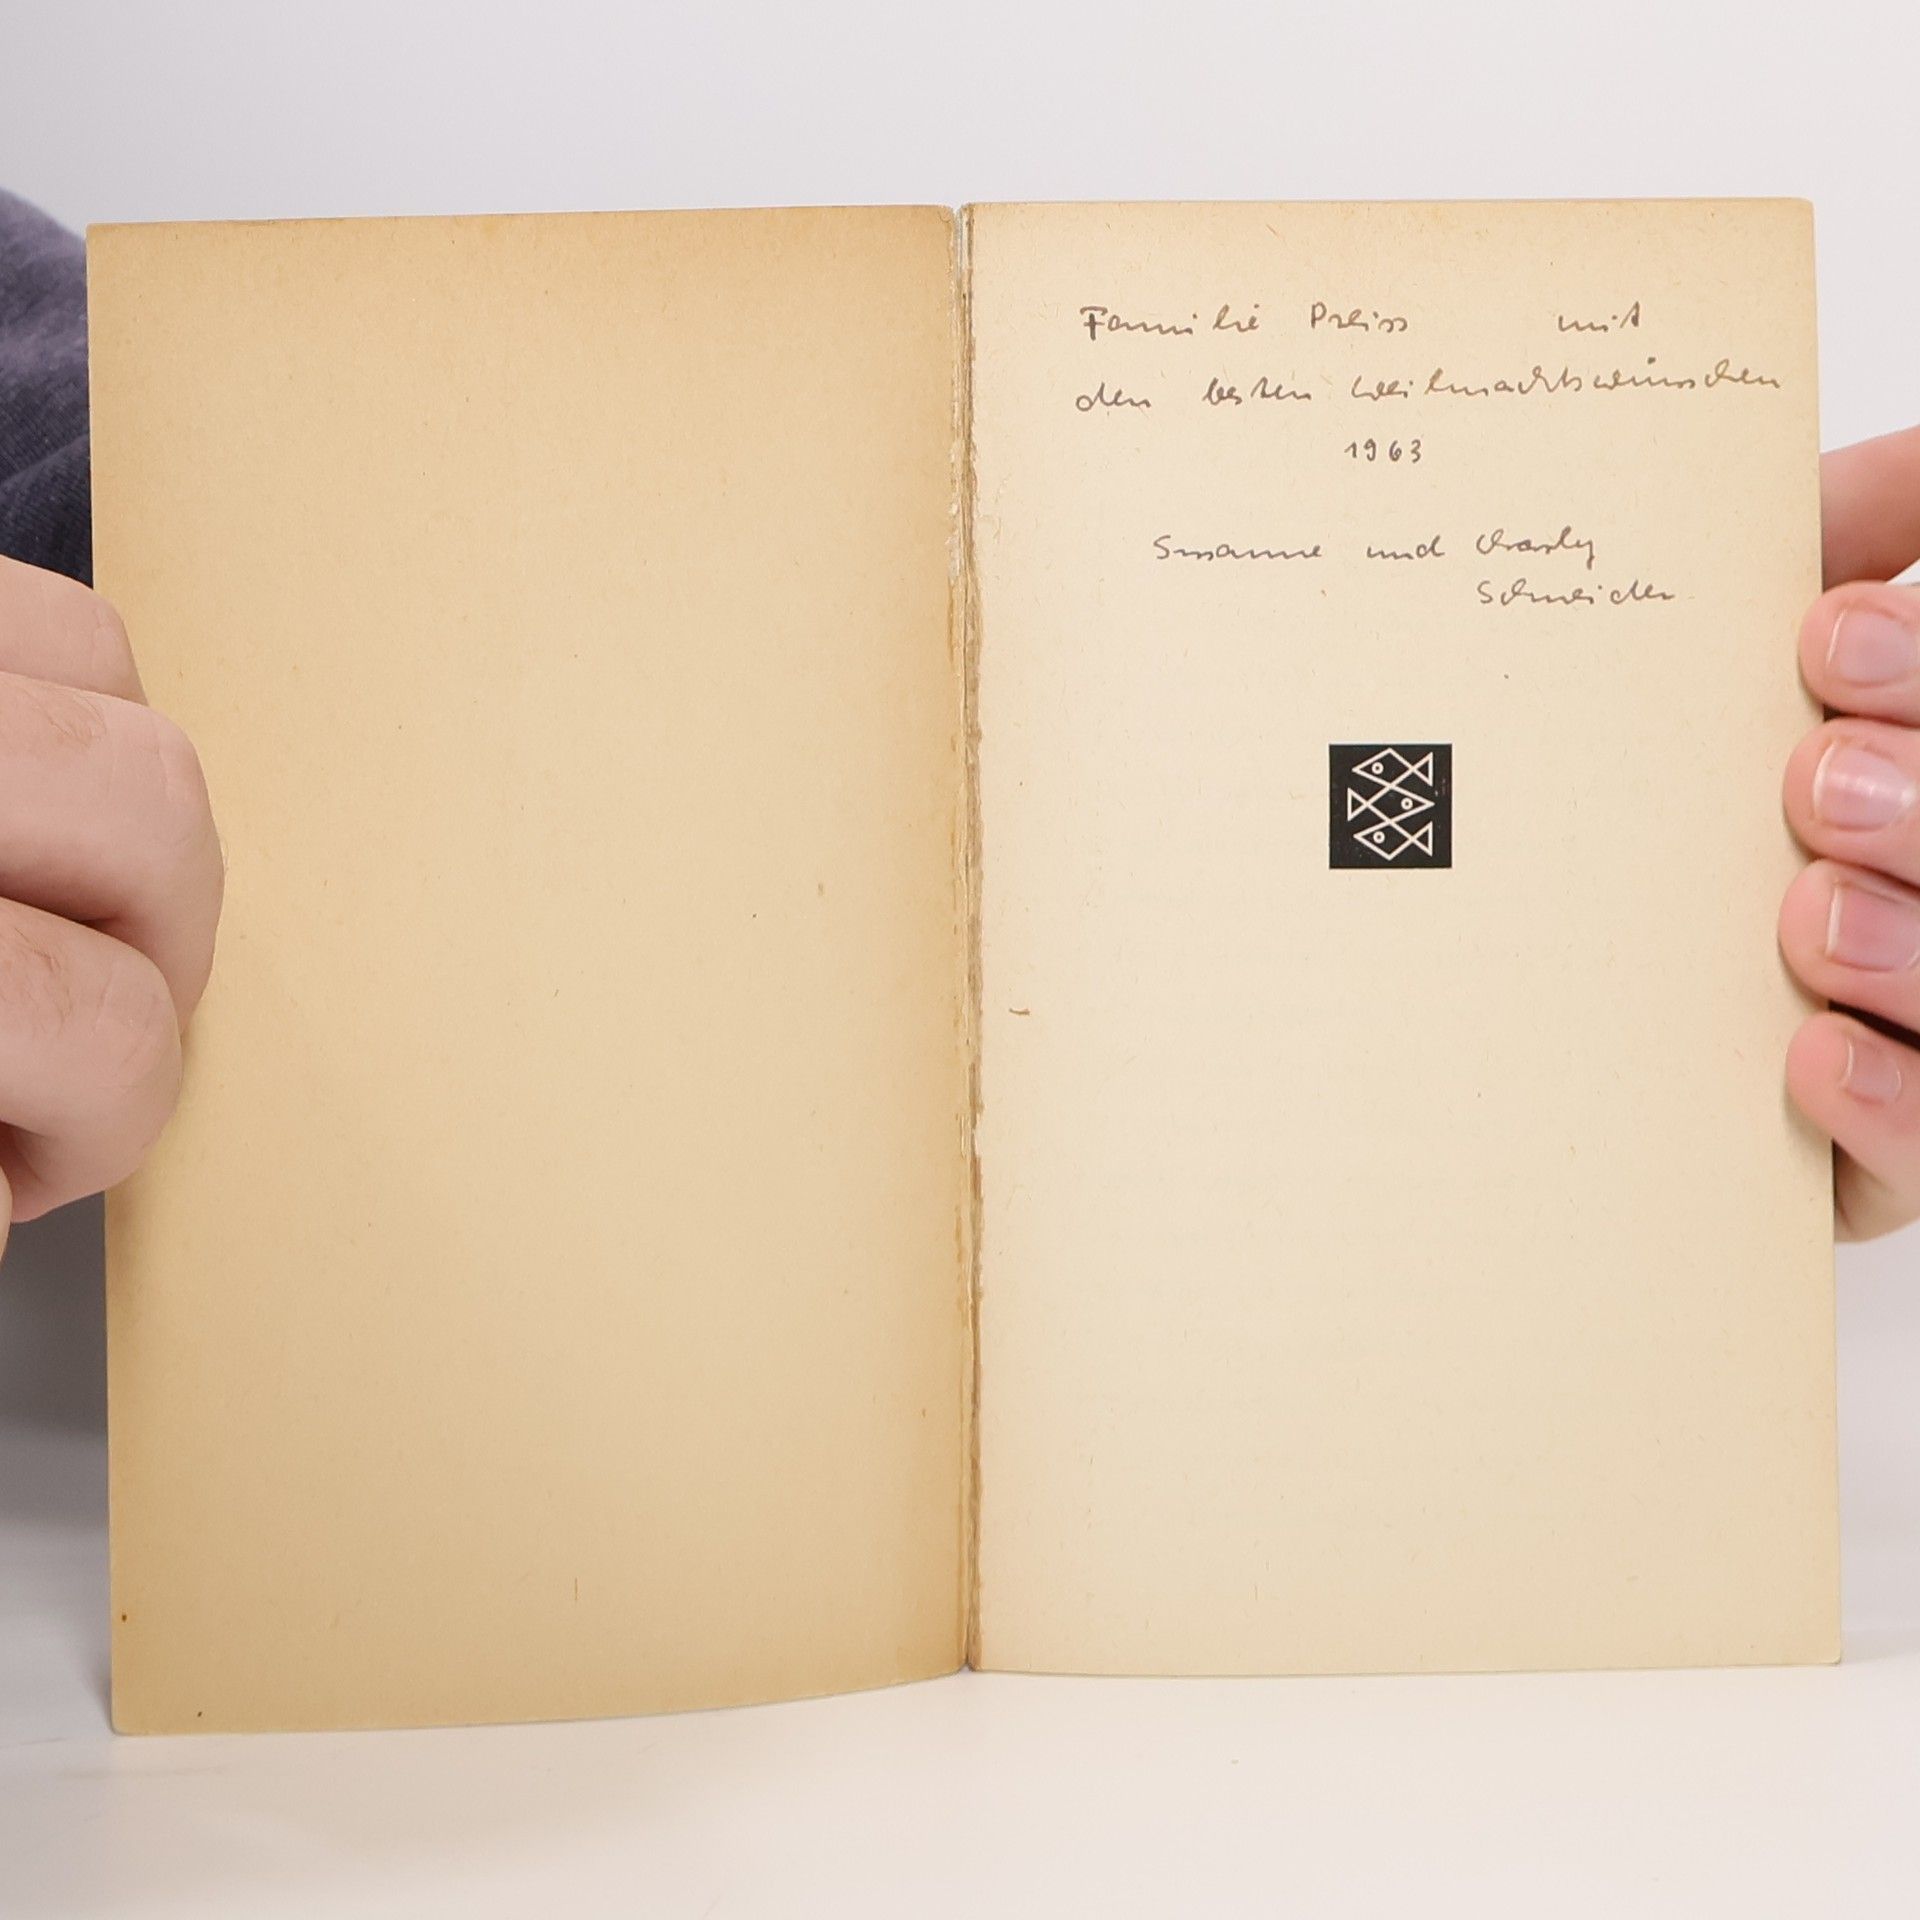 Familie Preiss mit
den besten Weihnachtswünschen
1963
Susanne und Charly
Schneider